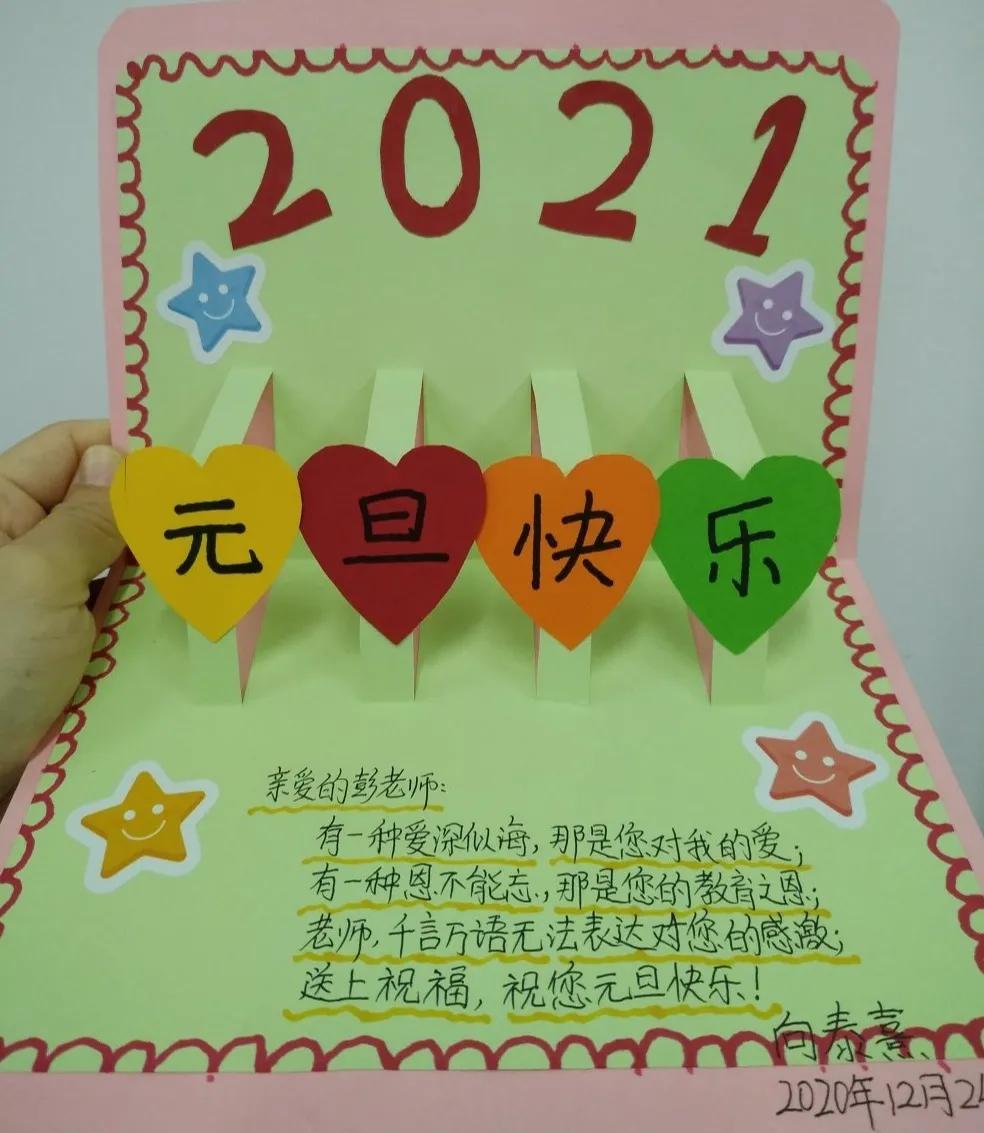 2021
元旦快乐
亲爱的彭老师:
有一种爱深似海,那是您对我的爱;
有一种恩不能忘,那是您的教育之恩;
老师,千言万语无法表达对您的感激;
送上祝福,祝您元旦快乐!
向泰熹
2020年12月2